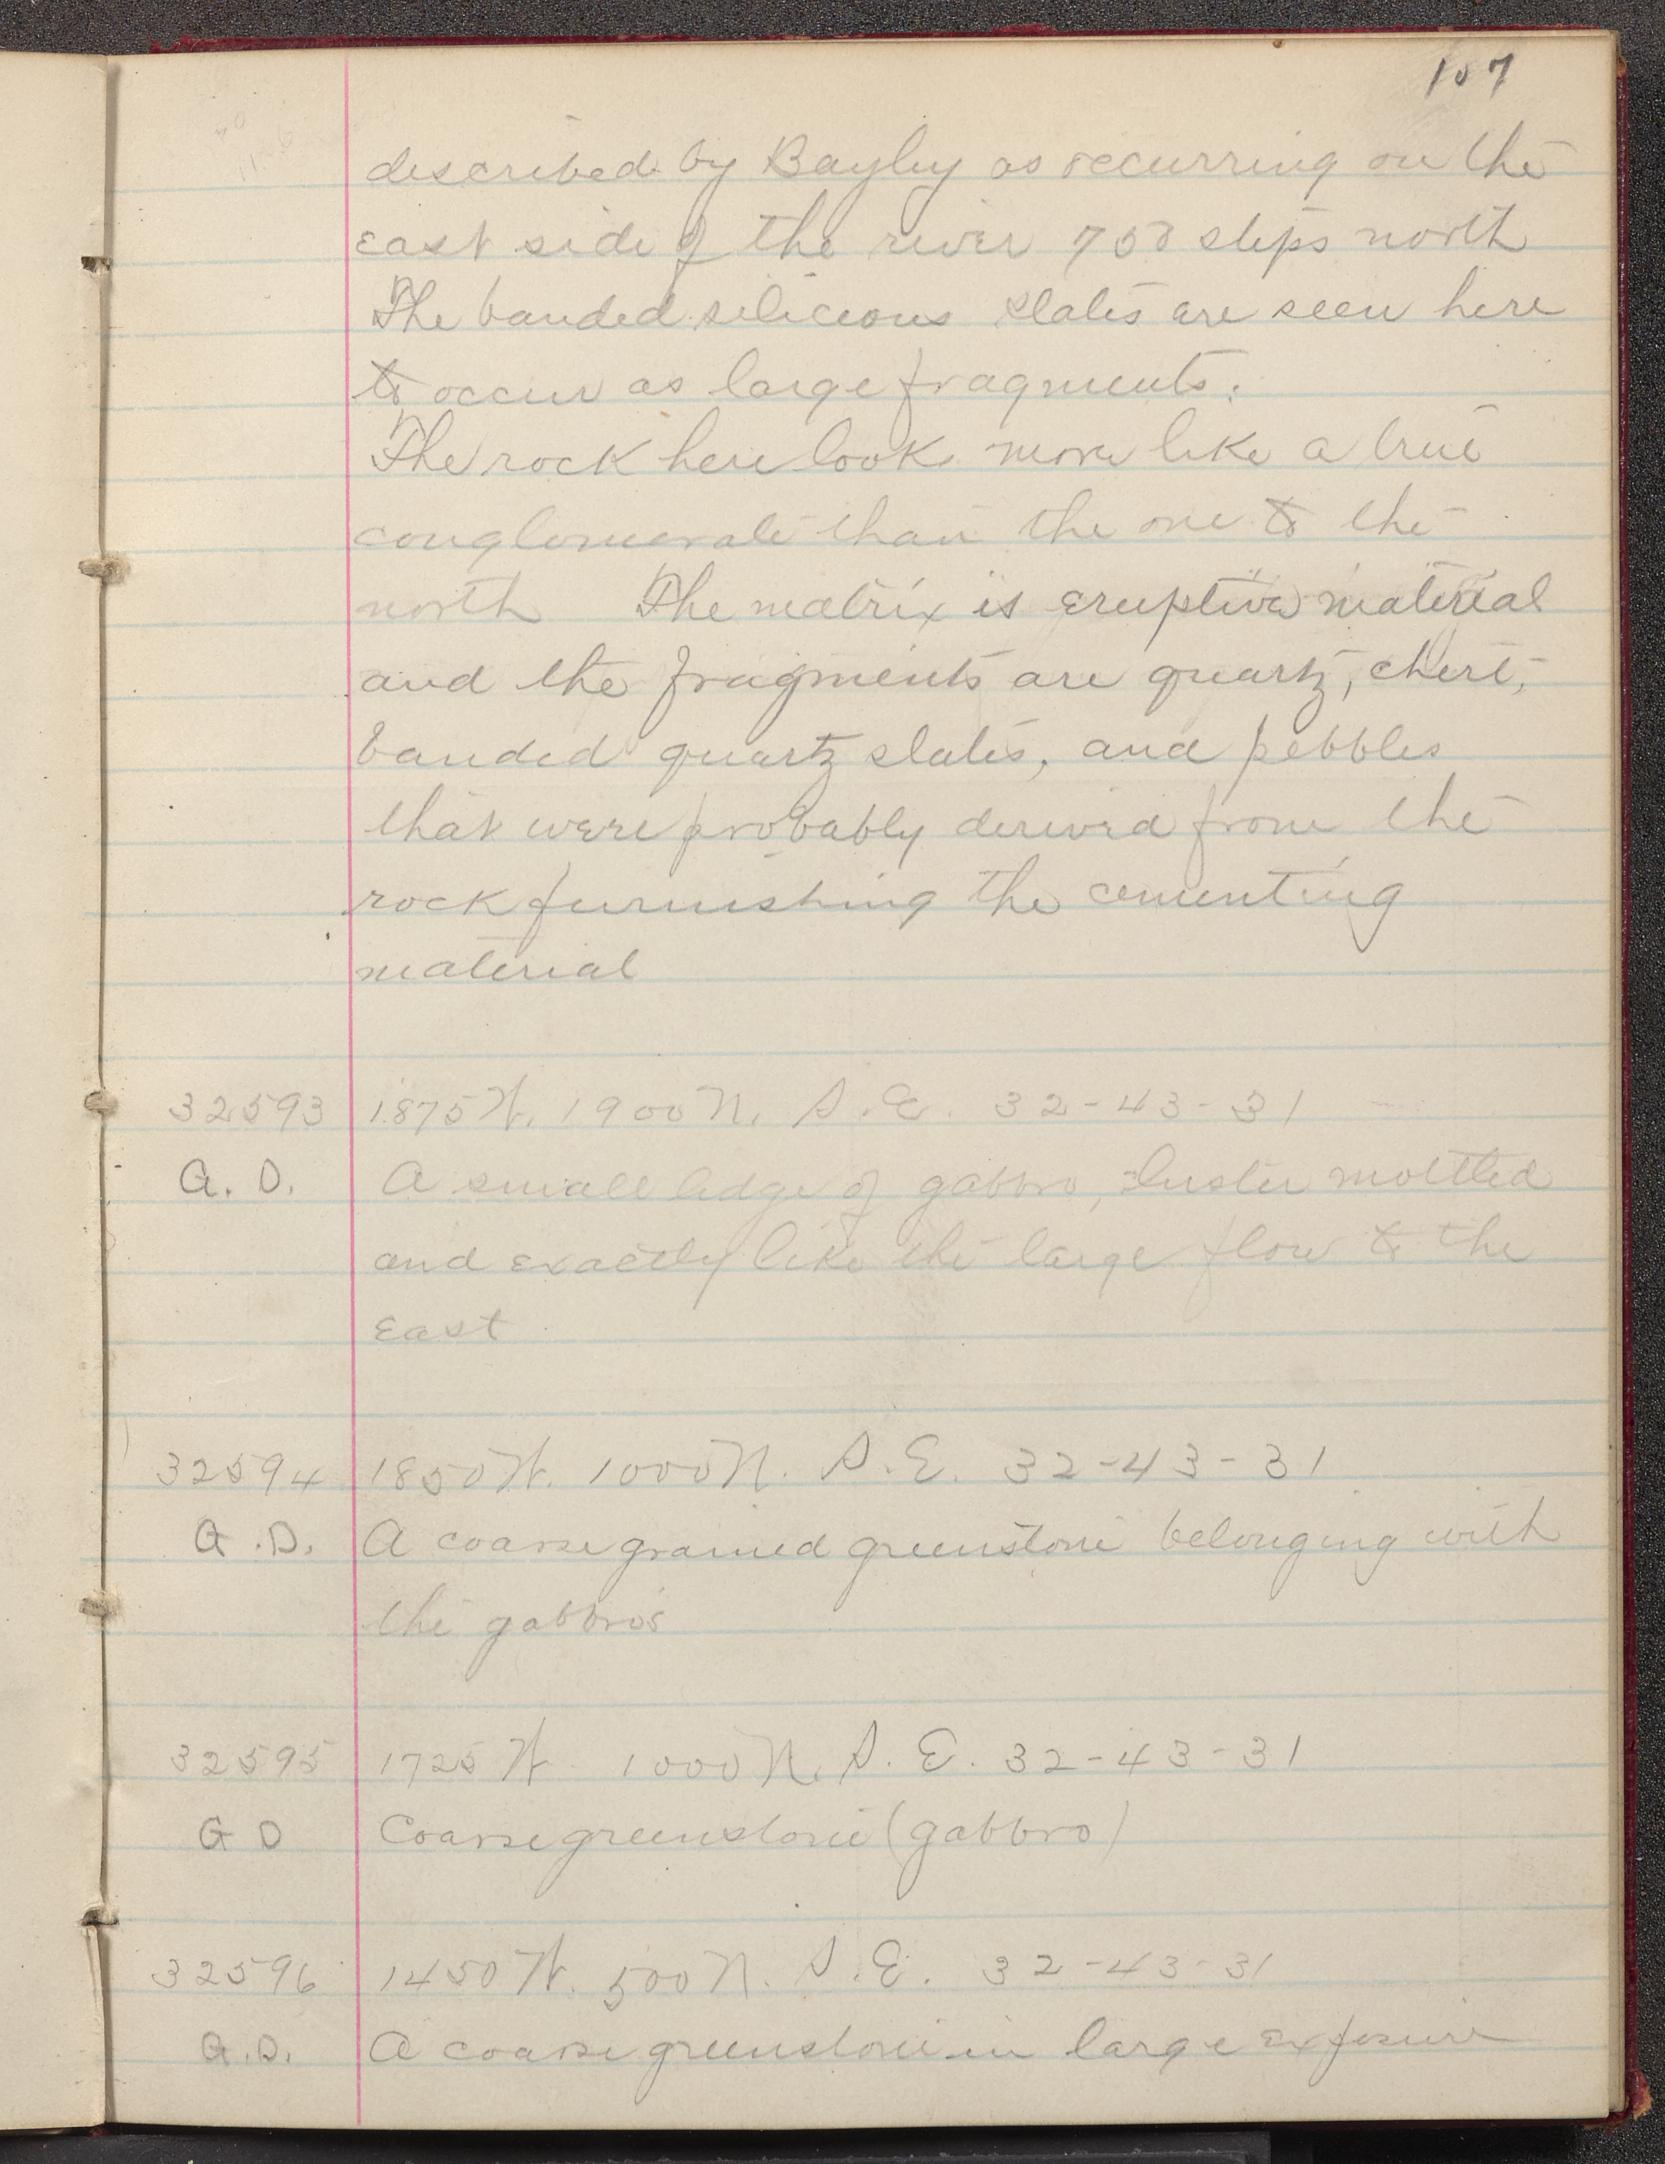 107
described by Bayley as occurring on the
east side of the river 700 steps north
The banded silicious slates are seen here
to occur as large fragments.
The rock here looks more like a true
conglomerate than the one to the
north The matrix is eruptive material
and the fragments are quartz, chert,
banded quartz slates, and pebbles
that were probably derived from the
rock furnishing the cementing
material
32593 1875 W. 1900 N. S.E. 32-43-31
G. D. A small ledge of gabbro, luster mottled
and exactly like the large flow to the
east
32594 1850 W. 1000 N. S.E. 32-43-31
G. D. A coarse grained greenstone belonging with
the gabbros
32595 1725 W. 1000 N. S. E. 32-43-31
G D Coarse greenstone (gabbro)
32596 1450 W. 500 N. S.E. 32-43-31
G.D. A coarse greenstone in large exposure